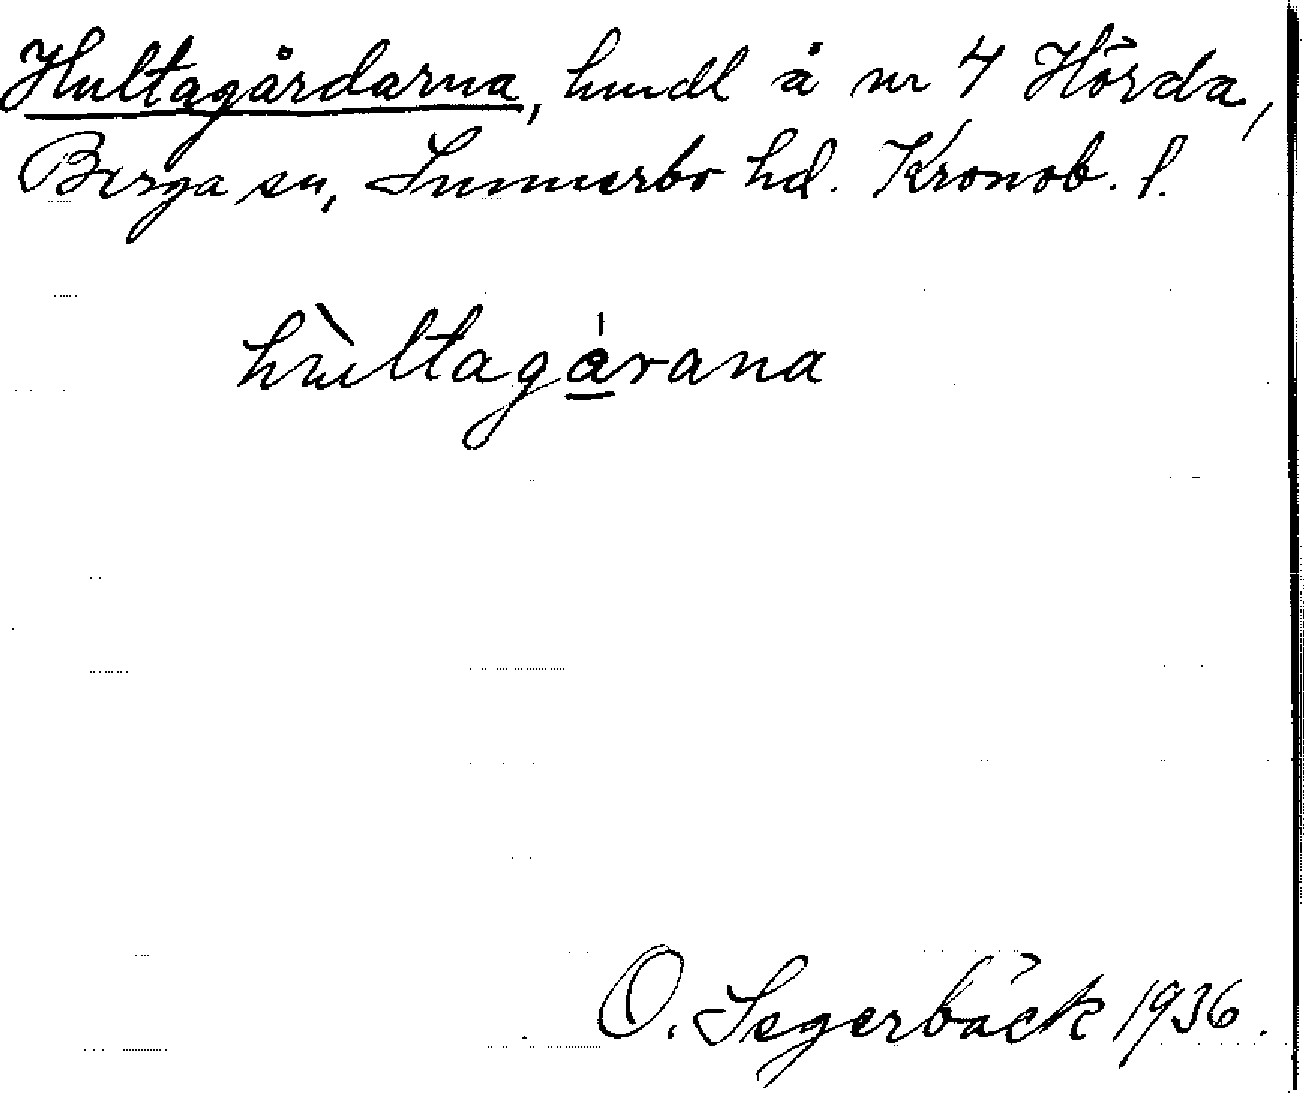 Hultagårdarna, hmdl å nr 4 Hörda,
Berga sn, Sunnerbo hd. Kronob. l.
hùltagárana
O. Segerbäck 1936.